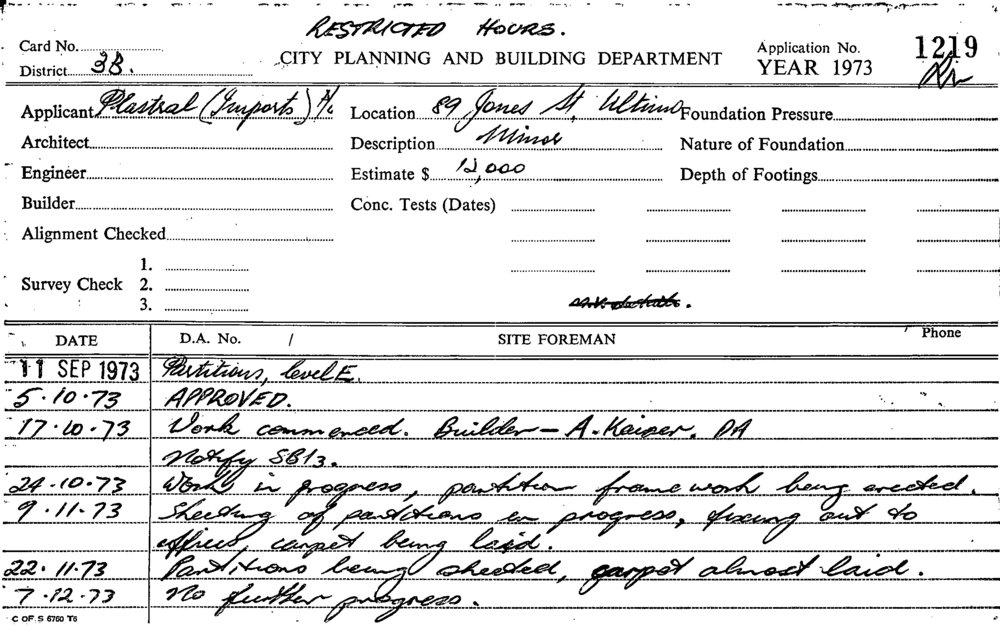 RESTRICTED HOURS.
Card No.
District 3B.
CITY PLANNING AND BUILDING DEPARTMENT
Application No. 1219
YEAR 1973
Applicant Plastral (Imports) P/L
Location 89 Jones St, Ultimo
Foundation Pressure
Architect
Description Minor
Nature of Foundation
Engineer
Estimate $ 12,000
Depth of Footings
Builder
Conc. Tests (Dates)
Alignment Checked
Survey Check
1.
2.
3.
DATE
D.A. No. /
SITE FOREMAN
Phone
11 SEP 1973 Partitions, level E.
5.10.73 APPROVED.
17.10.73 Work commenced. Builder - A. Kaiser. DA
Notify SB13.
24.10.73 Work in progress, partition frame work being erected.
9.11.73 Sheeting of partitions in progress, fixing out to
offices, carpet being laid.
22.11.73 Partitions being sheeted, carpet almost laid.
7.12.73 No further progress.
C OF S 6760 T6